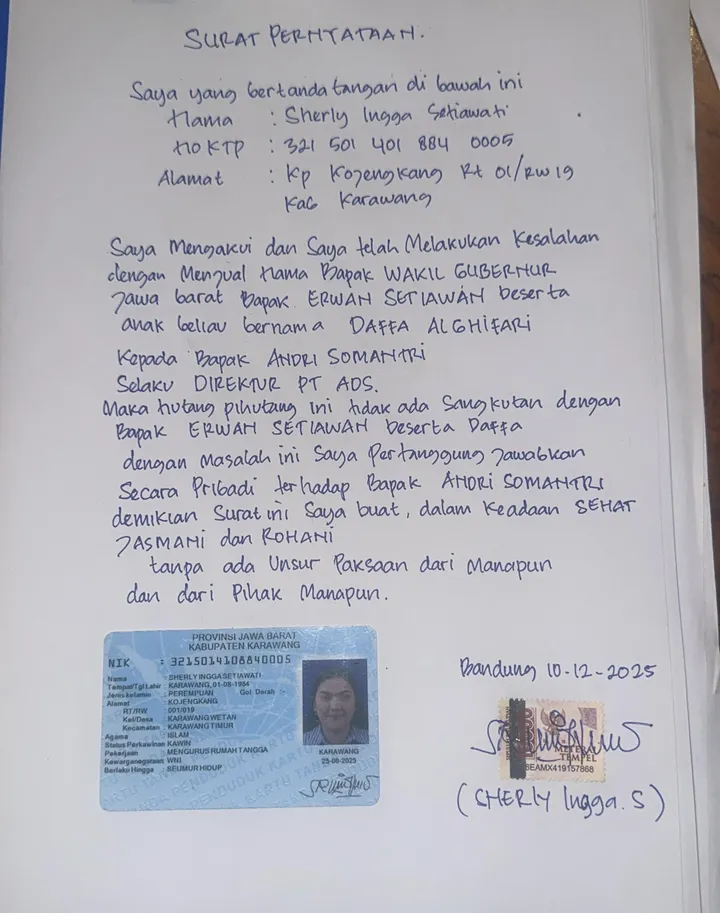 SURAT PERNYATAAN.
Saya yang bertanda tangan di bawah ini
Nama : Sherly Ingga Setiawati
NO KTP : 321 501 401 884 0005
Alamat : Kp Kojengkang Rt 01/RW 19
Kab Karawang
Saya Mengakui dan Saya telah Melakukan Kesalahan
dengan Menjual Nama Bapak WAKIL GUBERNUR
Jawa barat Bapak ERWAN SETIAWAN beserta
anak beliau bernama DAFFA ALGHIFARI
Kepada Bapak ANDRI SOMANTRI
Selaku DIREKTUR PT ADS.
Maka hutang pihutang ini tidak ada Sangkutan dengan
Bapak ERWAN SETIAWAN beserta Daffa
dengan Masalah ini Saya Pertanggung Jawabkan
Secara Pribadi terhadap Bapak ANDRI SOMANTRI
demikian Surat ini Saya buat, dalam Keadaan SEHAT
JASMANI dan ROHANI
tanpa ada Unsur Paksaan dari Manapun
dan dari Pihak Manapun.
PROVINSI JAWA BARAT
KABUPATEN KARAWANG
NIK : 3215014108840005
Nama : SHERLY INGGA SETIAWATI
Tempat/Tgl Lahir : KARAWANG, 01-08-1984
Jenis kelamin : PEREMPUAN Gol Darah :-
Alamat : KOJENGKANG
RT/RW : 001/019
Kel/Desa : KARAWANG WETAN
Kecamatan : KARAWANG TIMUR
Agama : ISLAM
Status Perkawinan : KAWIN
Pekerjaan : MENGURUS RUMAH TANGGA
Kewarganegaraan : WNI
Berlaku Hingga : SEUMUR HIDUP
KARAWANG
25-08-2025
Bandung 10-12-2025
METERAI
TEMPEL
(SHERLY Ingga. S)